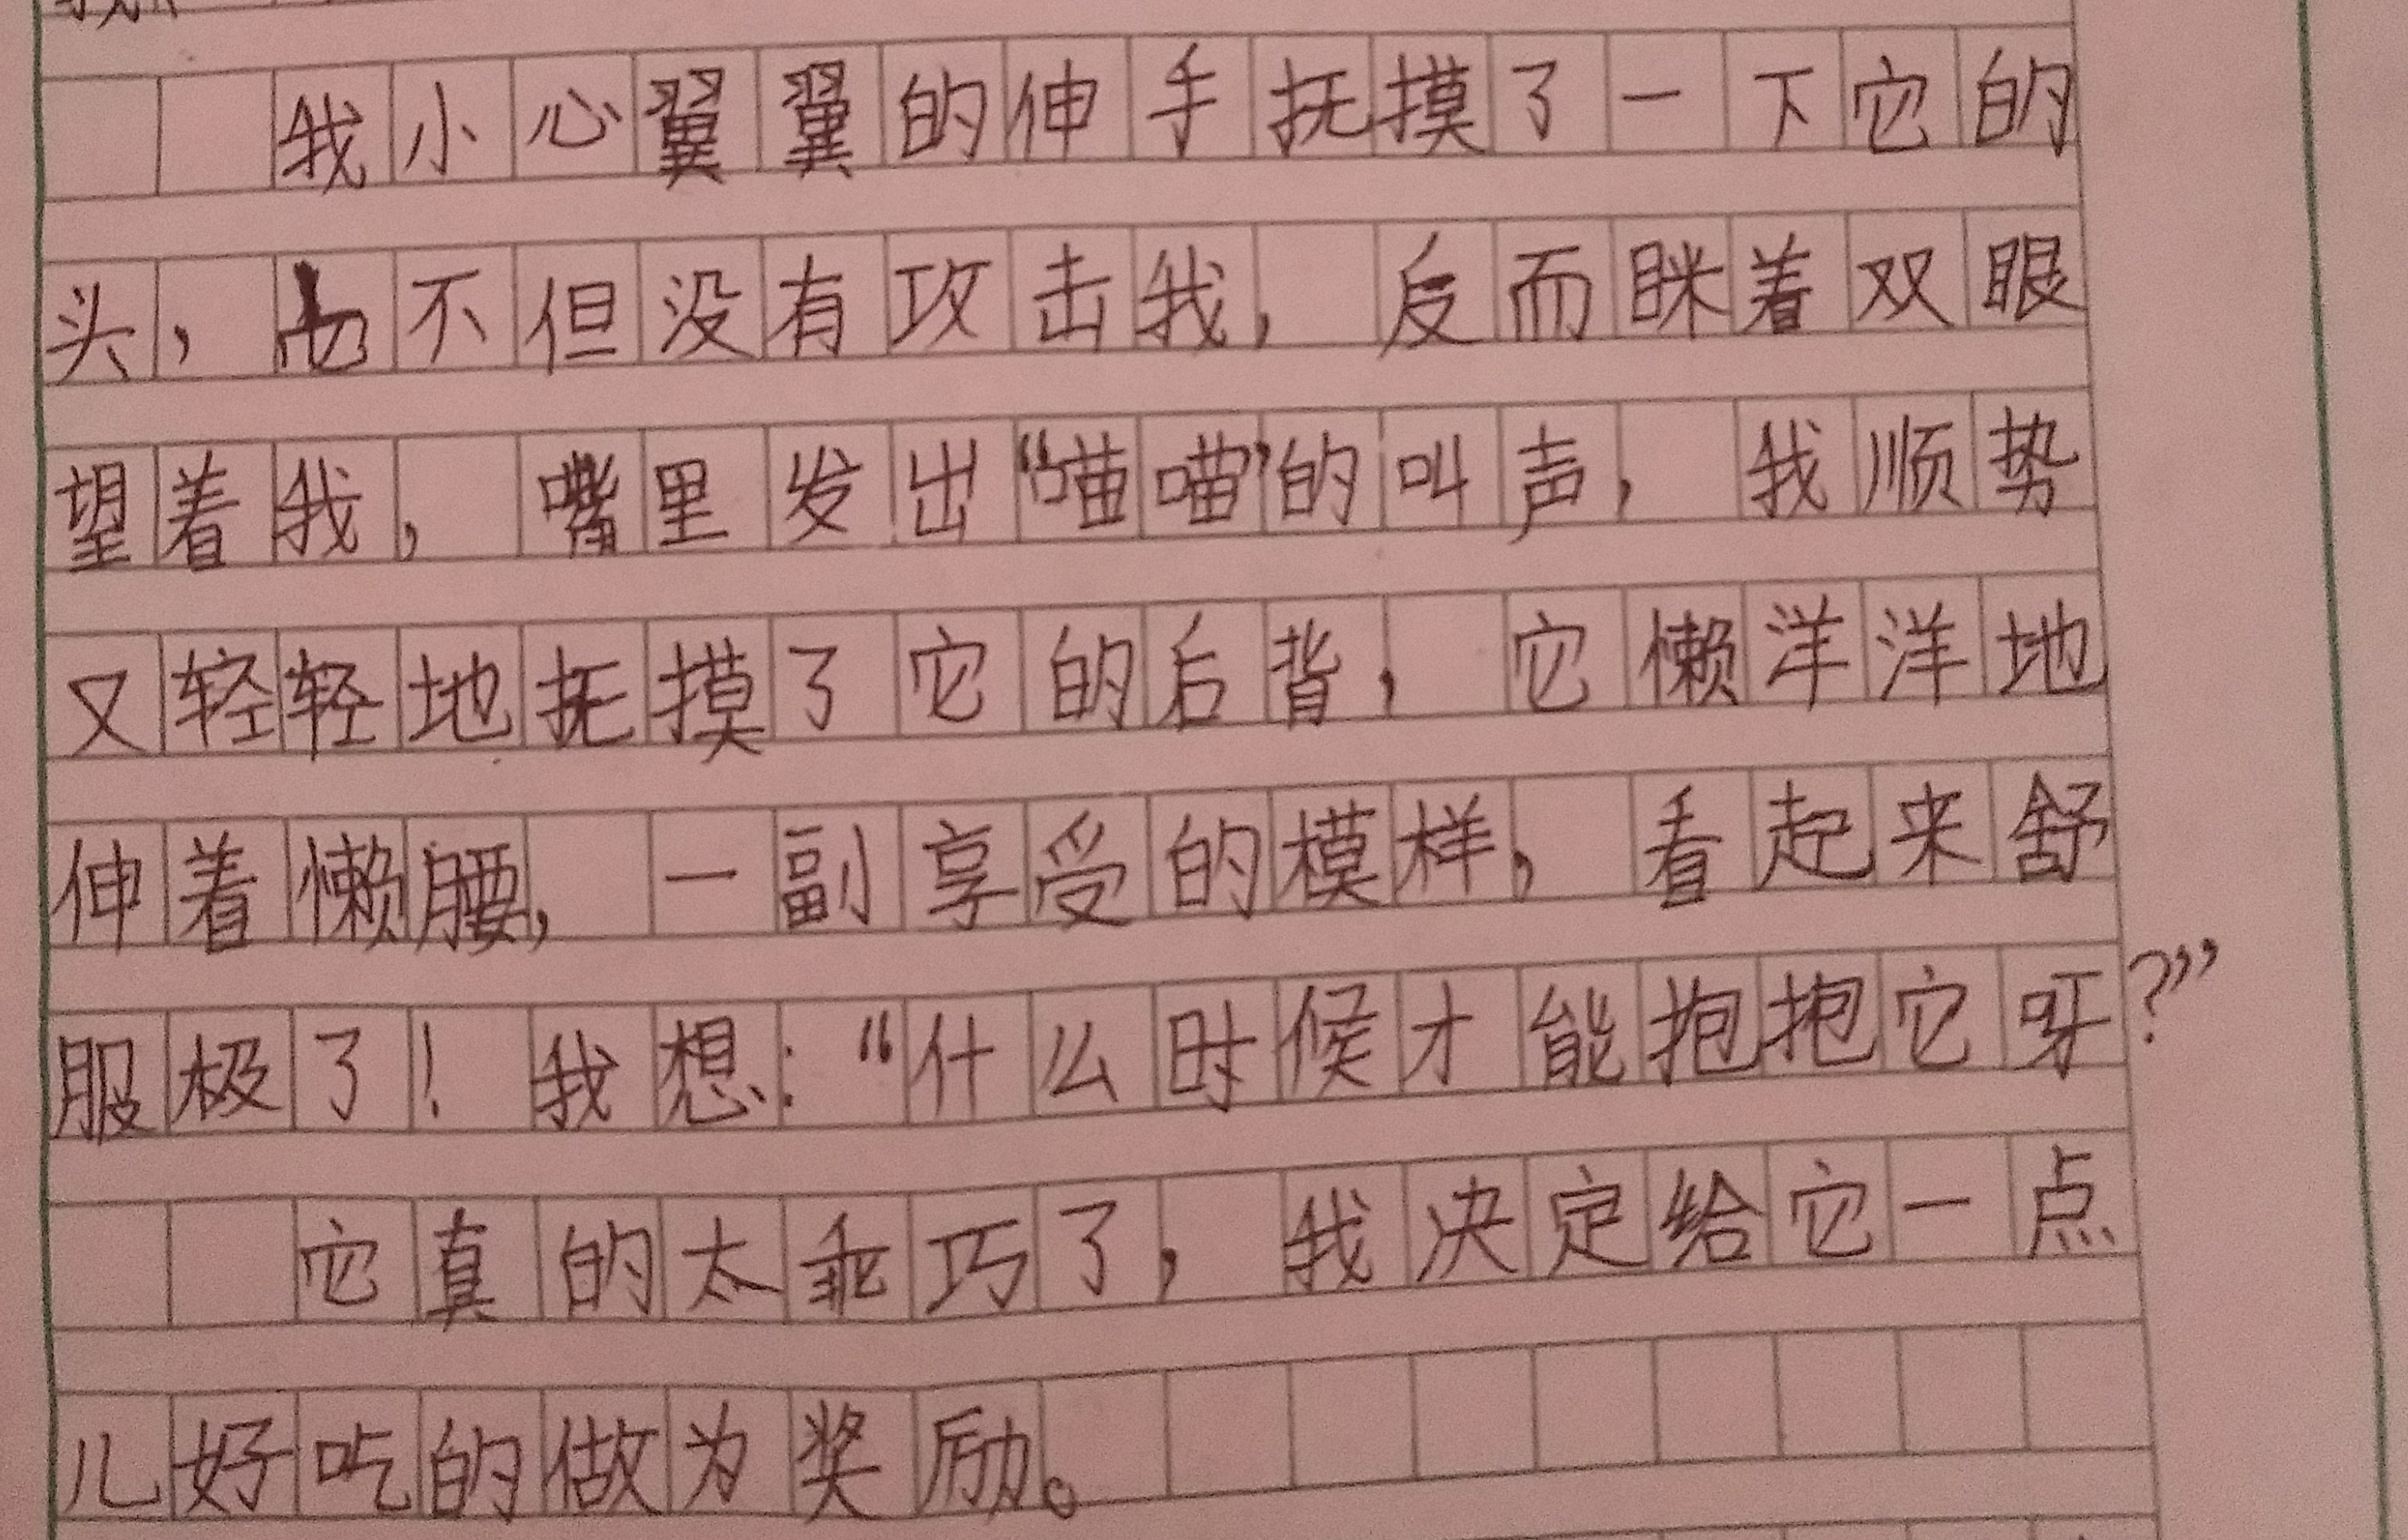 我小心翼翼的伸手抚摸了一下它的
头，它不但没有攻击我，反而眯着双眼
望着我，嘴里发出“喵喵”的叫声，我顺势
又轻轻地抚摸了它的后背，它懒洋洋地
伸着懒腰，一副享受的模样，看起来舒
服极了！我想：“什么时候才能抱抱它呀？”
它真的太乖巧了，我决定给它一点
儿好吃的做为奖励。